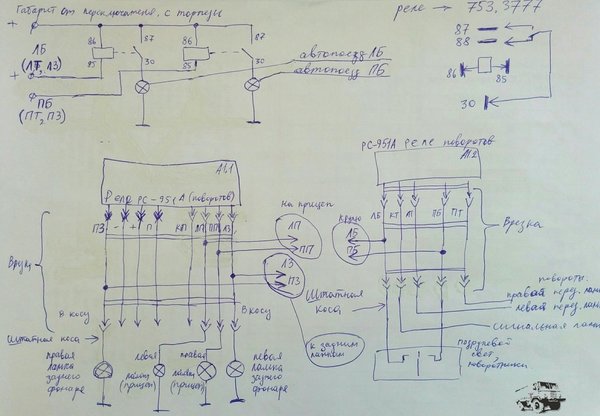 Габарит от переключателя, с торпеды
реле → 753,3777
+
87
87
87
ЛБ
86
86
88
(ЛТ, ЛЗ)
30
30
автопоезд ЛБ
+
85
85
автопоезд ПБ
86
85
ПБ
(ПТ, ПЗ)
30
РС-951А реле поворотов
А61
А12
Реле РС-951А (поворотов)
на прицеп
ЛБ
КТ
ЛТ
ПБ
ПТ
Врезка
ПЗ
-
+
П
КП
ЛП
ПП
ЛЗ
ЛП
ЛБ
ПП
ПБ
ЛЗ
ПЗ
повороты
В косу
В косу
Штатная
коса
правый перед.
левый перед.
Штатная коса
к задним
сигнальная
правая
левая
правая
левая
подрулевой
лампа
лампа
свет,
заднего
(прицеп)
(прицеп)
заднего
поворотники
фонаря
фонаря